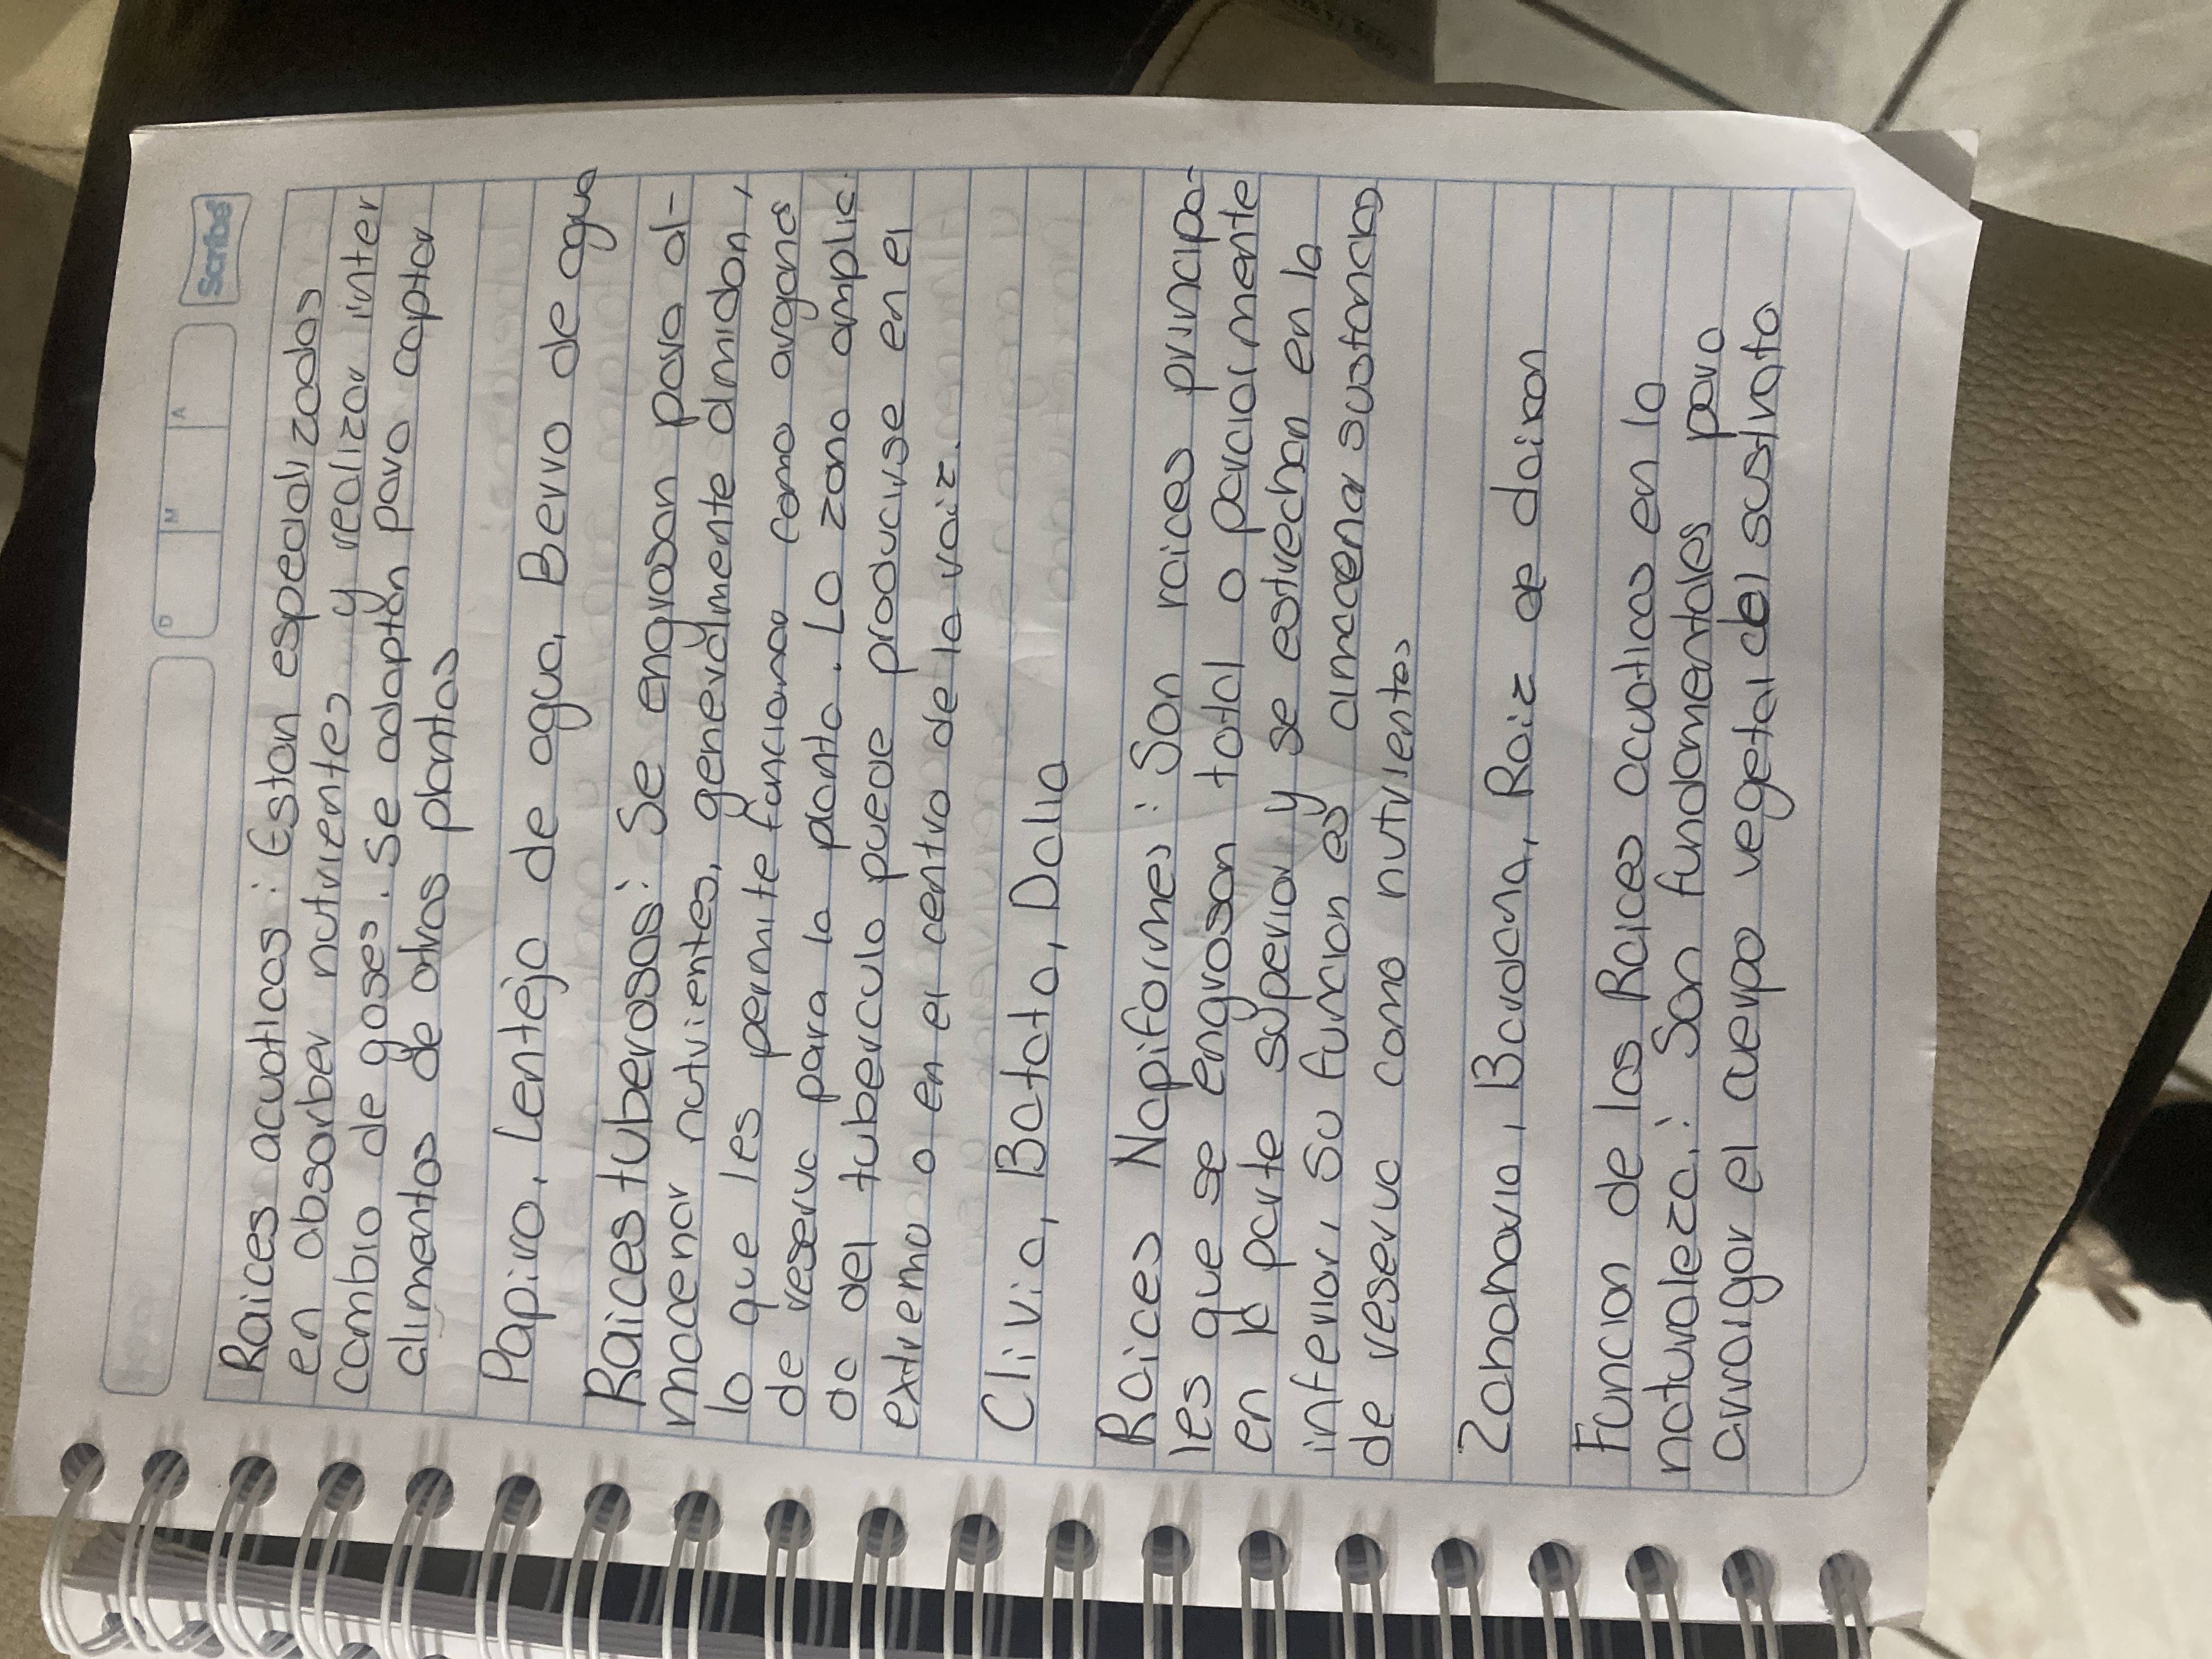 Scribe
D M A
Raices acuaticas: Estan especializadas
en absorber nutrientes y realizar inter
cambio de gases. Se adaptan para captar
alimentos de otras plantas
Papiro, Lentejo de agua, Berro de agua
Raices tuberosas: Se engrosan para al-
macenar nutrientes, generalmente almidon,
lo que les permite funcionar como organos
de reserva para la planta. La zona amplia
da del tuberculo puede producirse en el
extremo o en el centro de la raiz.
Clivia, Batata, Dalia
Raices Napiformes: Son raices principa-
les que se engrosan total o parcialmente
en la parte superior y se estrechan en la
inferior, su funcion es almacenar sustancias
de reserva como nutrientes
Zabanoria, Bardana, Raiz de daikon
Funcion de las Raices acuaticas en la
naturaleza: Son fundamentales para
arraigar el cuerpo vegetal del sustrato